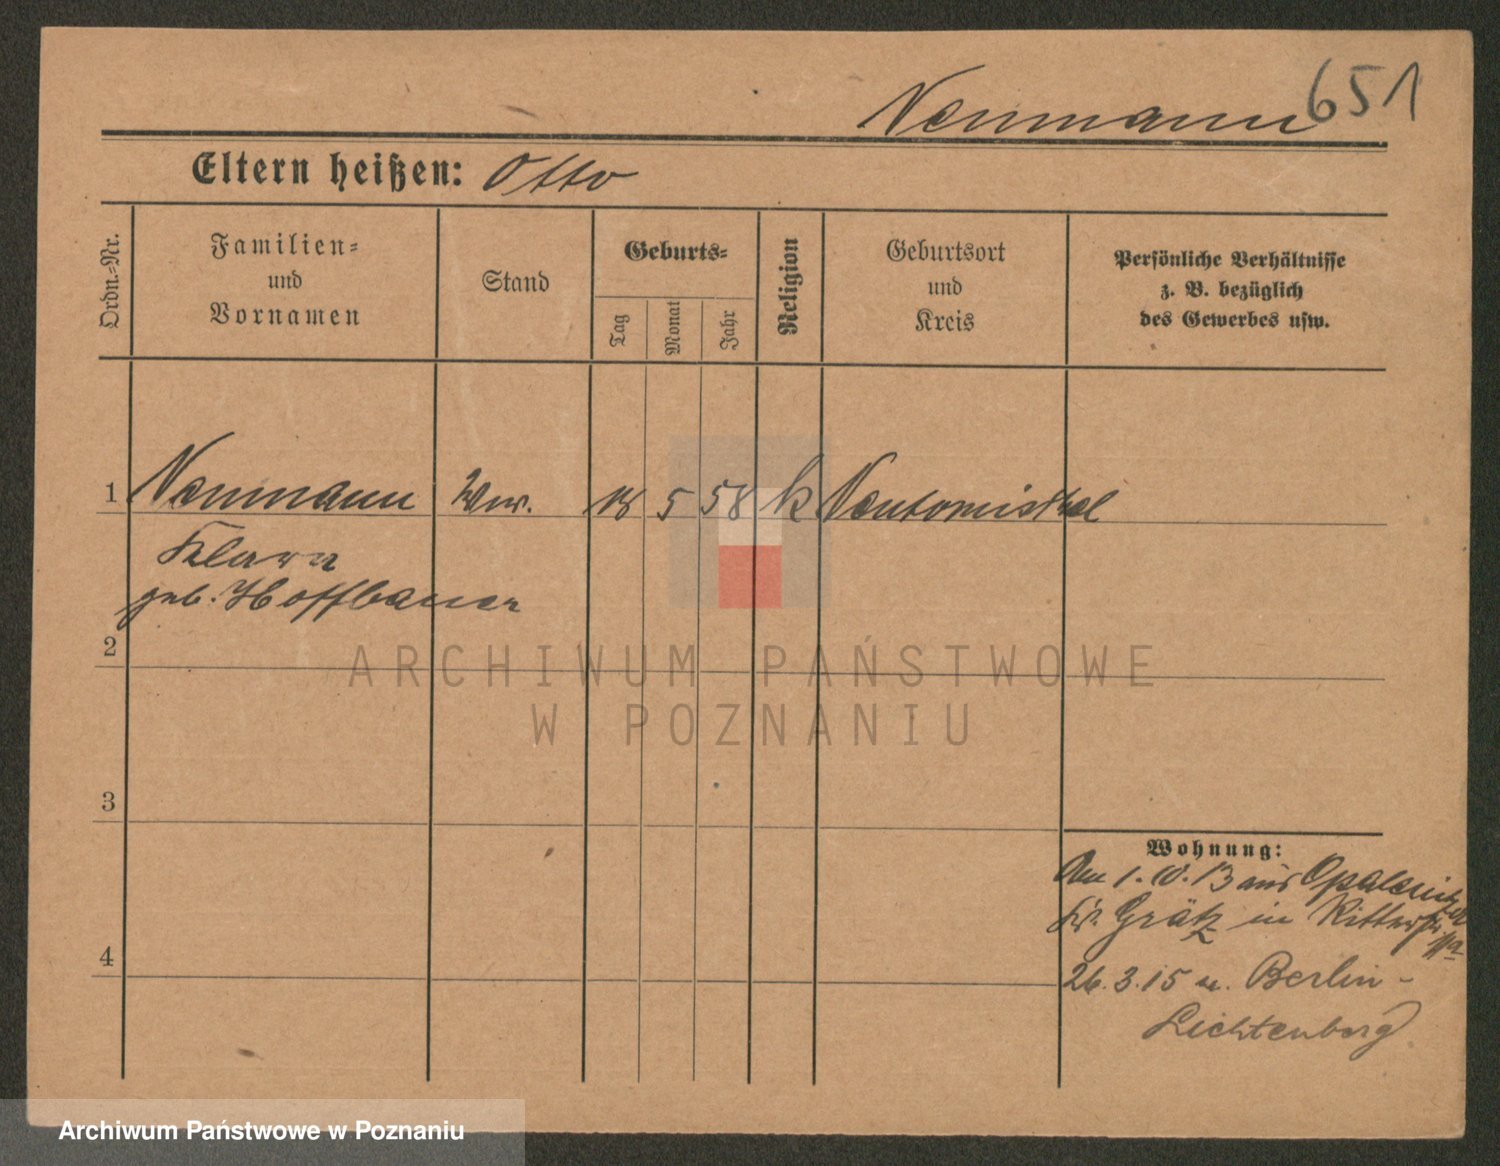 Neumann 651
Eltern heißen: Otto
Ordn.-Nr.
Familien-
und
Vornamen
Stand
Geburts-
Tag
Monat
Jahr
Religion
Geburtsort
und
Kreis
Persönliche Verhältnisse
z. B. bezüglich
des Gewerbes usw.
1 Neumann Ww. 18 5 58 k Neutomischel
Klara
geb. Hoffbauer
2
3
4
Wohnung:
Am 1. 10. 13 aus Opalenitza
Kr. Grätz in Ritterstr.
26.3.15 n. Berlin-
Lichtenberg
ARCHIWUM PAŃSTWOWE
W POZNANIU
Archiwum Państwowe w Poznaniu